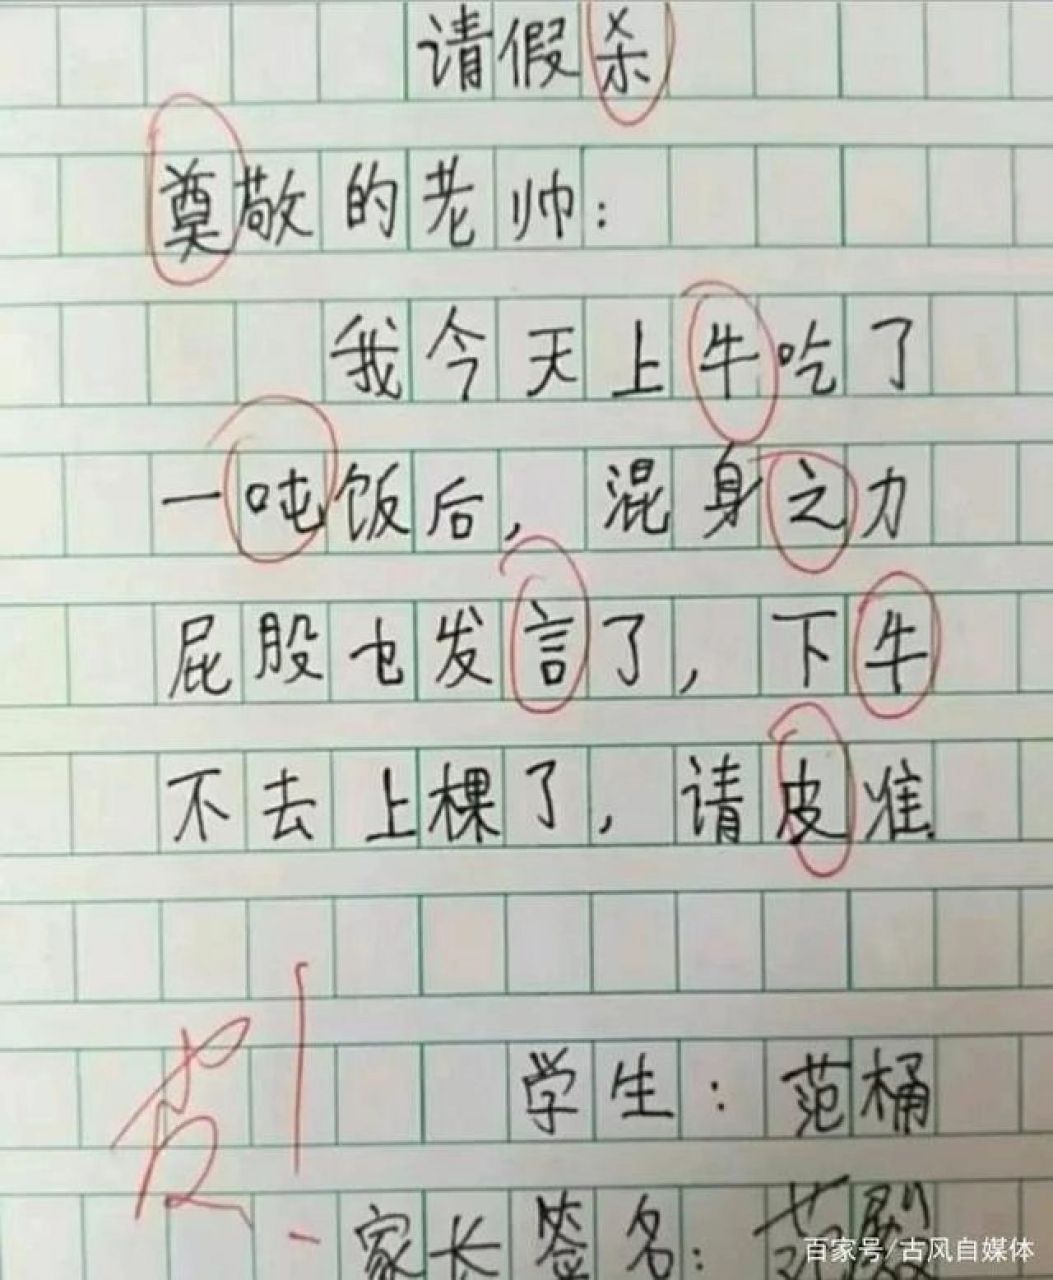 请假杀
奠敬的老帅：
我今天上牛吃了
一吨饭后，混身之力
屁股也发言了，下牛
不去上棵了，请皮准.
学生：范桶
家长签名：范
百家号/古风自媒体